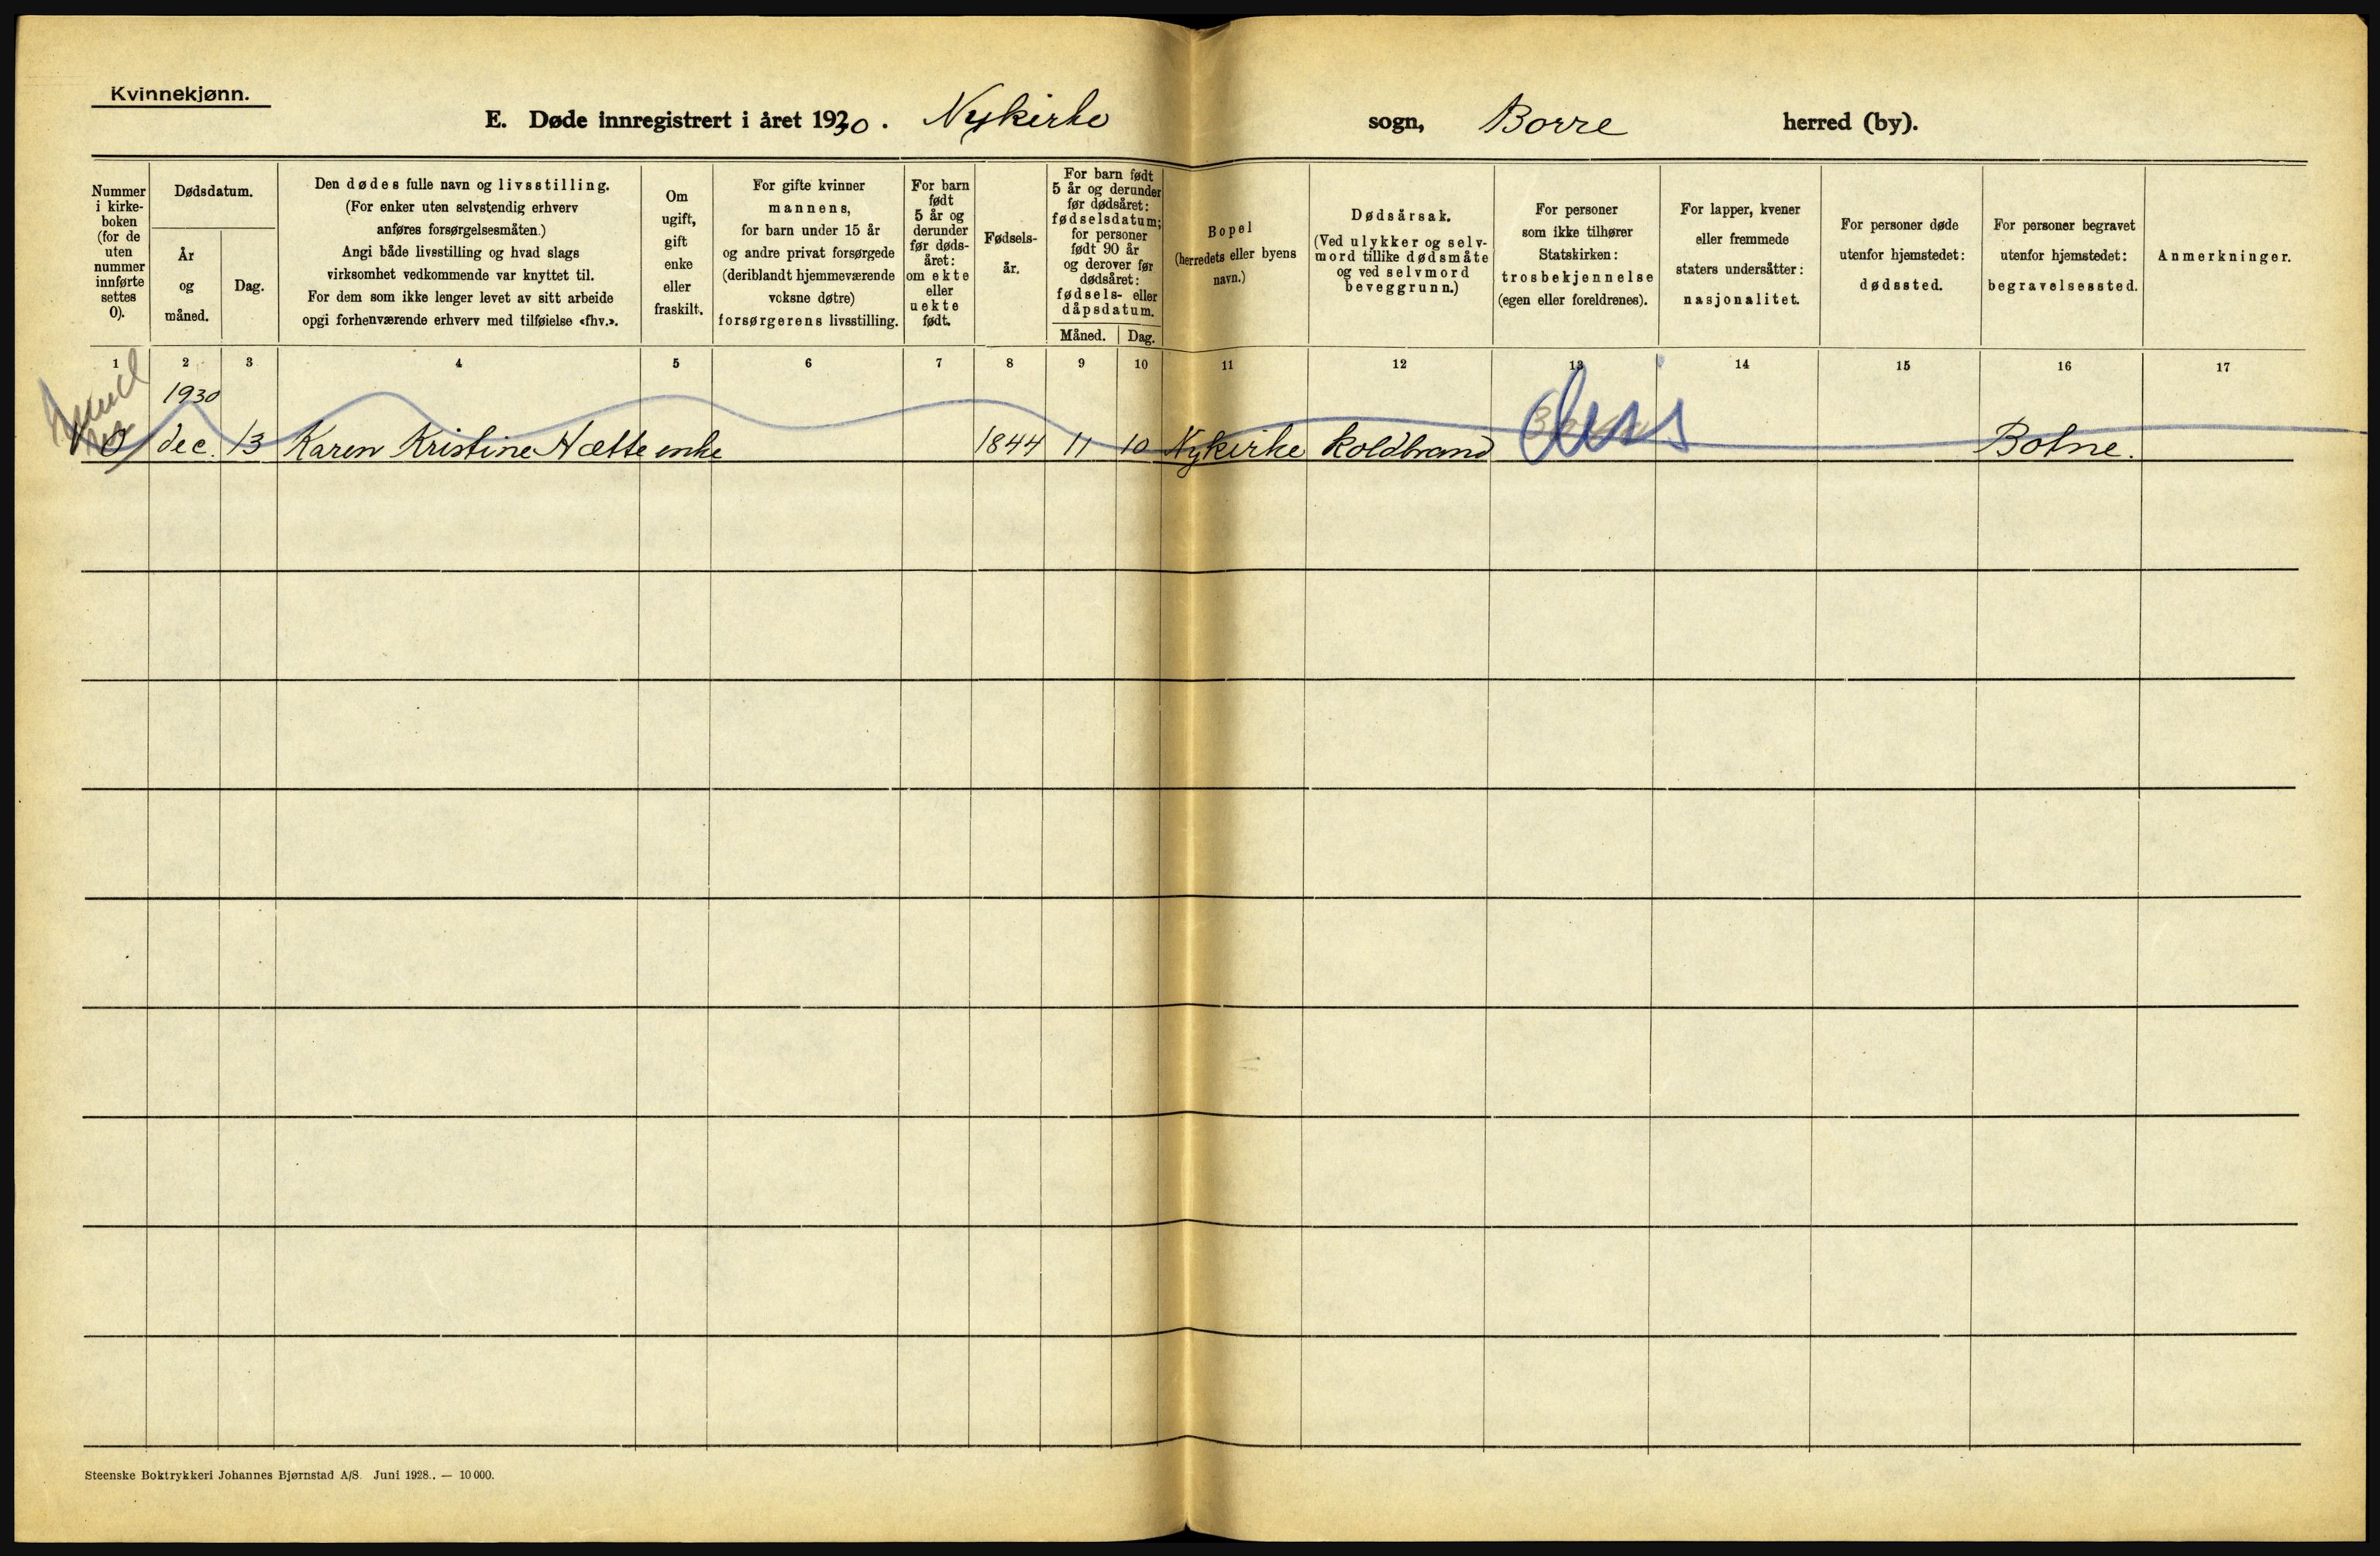 Kvinnekjønn.
E. Døde innregistrert i året 1930. Nykirke sogn, Borre herred (by).
Nummer i kirke-boken (for de uten nummer innførte settes 0).
Dødsdatum.
År og måned.
Dag.
Den dødes fulle navn og livsstilling.
(For enker uten selvstendig erhverv
anføres forsørgelsesmåten.)
Angi både livsstilling og hvad slags
virksomhet vedkommende var knyttet til.
For dem som ikke lenger levet av sitt arbeide
opgi forhenværende erhverv med tilføielse «fhv.».
Om
ugift,
gift
enke
eller
fraskilt.
For gifte kvinner
mannens,
for barn under 15 år
og andre privat forsørgede
(deriblandt hjemmeværende
voksne døtre)
forsørgerens livsstilling.
For barn
født
5 år og
derunder
før døds-
året:
om ekte
eller
uekte
født.
Fødsels-
år.
For barn født
5 år og derunder
før dødsåret:
fødselsdatum;
for personer
født 90 år
og derover før
dødsåret:
fødsels- eller
dåpsdatum.
Måned. Dag.
Bopel
(herredets eller byens
navn.)
Dødsårsak.
(Ved ulykker og selv-
mord tillike dødsmåte
og ved selvmord
beveggrunn.)
For personer
som ikke tilhører
Statskirken:
trosbekjennelse
(egen eller foreldrenes).
For lapper, kvener
eller fremmede
staters undersåtter:
nasjonalitet.
For personer døde
utenfor hjemstedet:
dødssted.
For personer begravet
utenfor hjemstedet:
begravelsessted.
Anmerkninger.
1 2 3 4 5 6 7 8 9 10 11 12 13 14 15 16 17
1930
0 dec. 13 Karen Kristine Hætte enke 1844 11 10 Nykirke koldbrand Diss Botne.
Steenske Boktrykkeri Johannes Bjørnstad A/S. Juni 1928.. — 10 000.